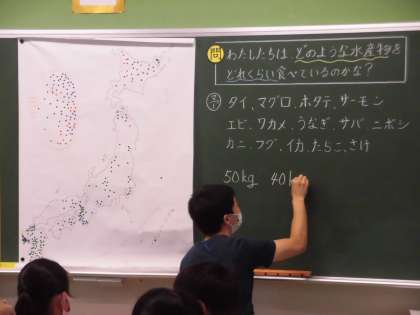 問 わたしたちは どのような水産物を
どれくらい食べているのかな？
タイ、マグロ、ホタテ、サーモン
エビ、ワカメ、うなぎ、サバ、ニボシ
カニ、フグ、イカ、たらこ、さけ
50kg 40k